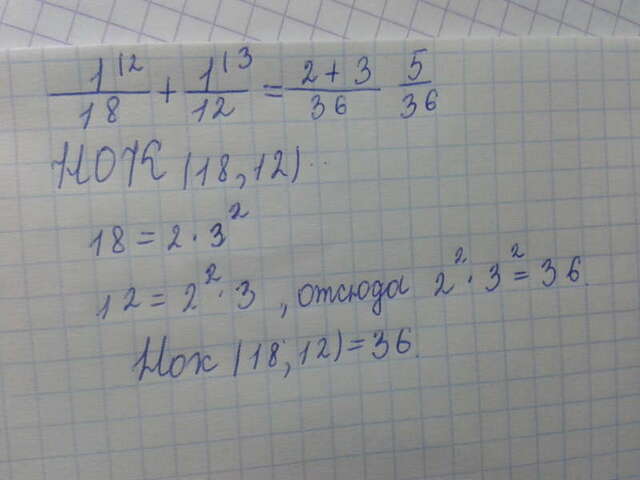 1^{|2}/18 + 1^{|3}/12 = 2+3/36 5/36
НОК (18,12)..
18 = 2 · 3²
12 = 2² · 3 , отсюда 2² · 3² = 36.
Нок (18,12) = 36.